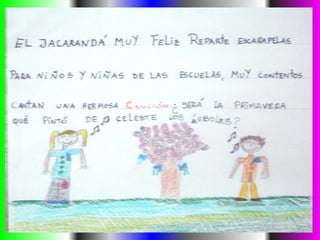 EL JACARANDÁ MUY FELIZ REPARTE ESCARAPELAS
PARA NIÑOS Y NIÑAS DE LAS ESCUELAS, MUY CONTENTOS
CANTAN UNA HERMOSA CANCIÓN: ¿SERÁ LA PRIMAVERA
QUE PINTÓ DE CELESTE LOS ÁRBOLES?